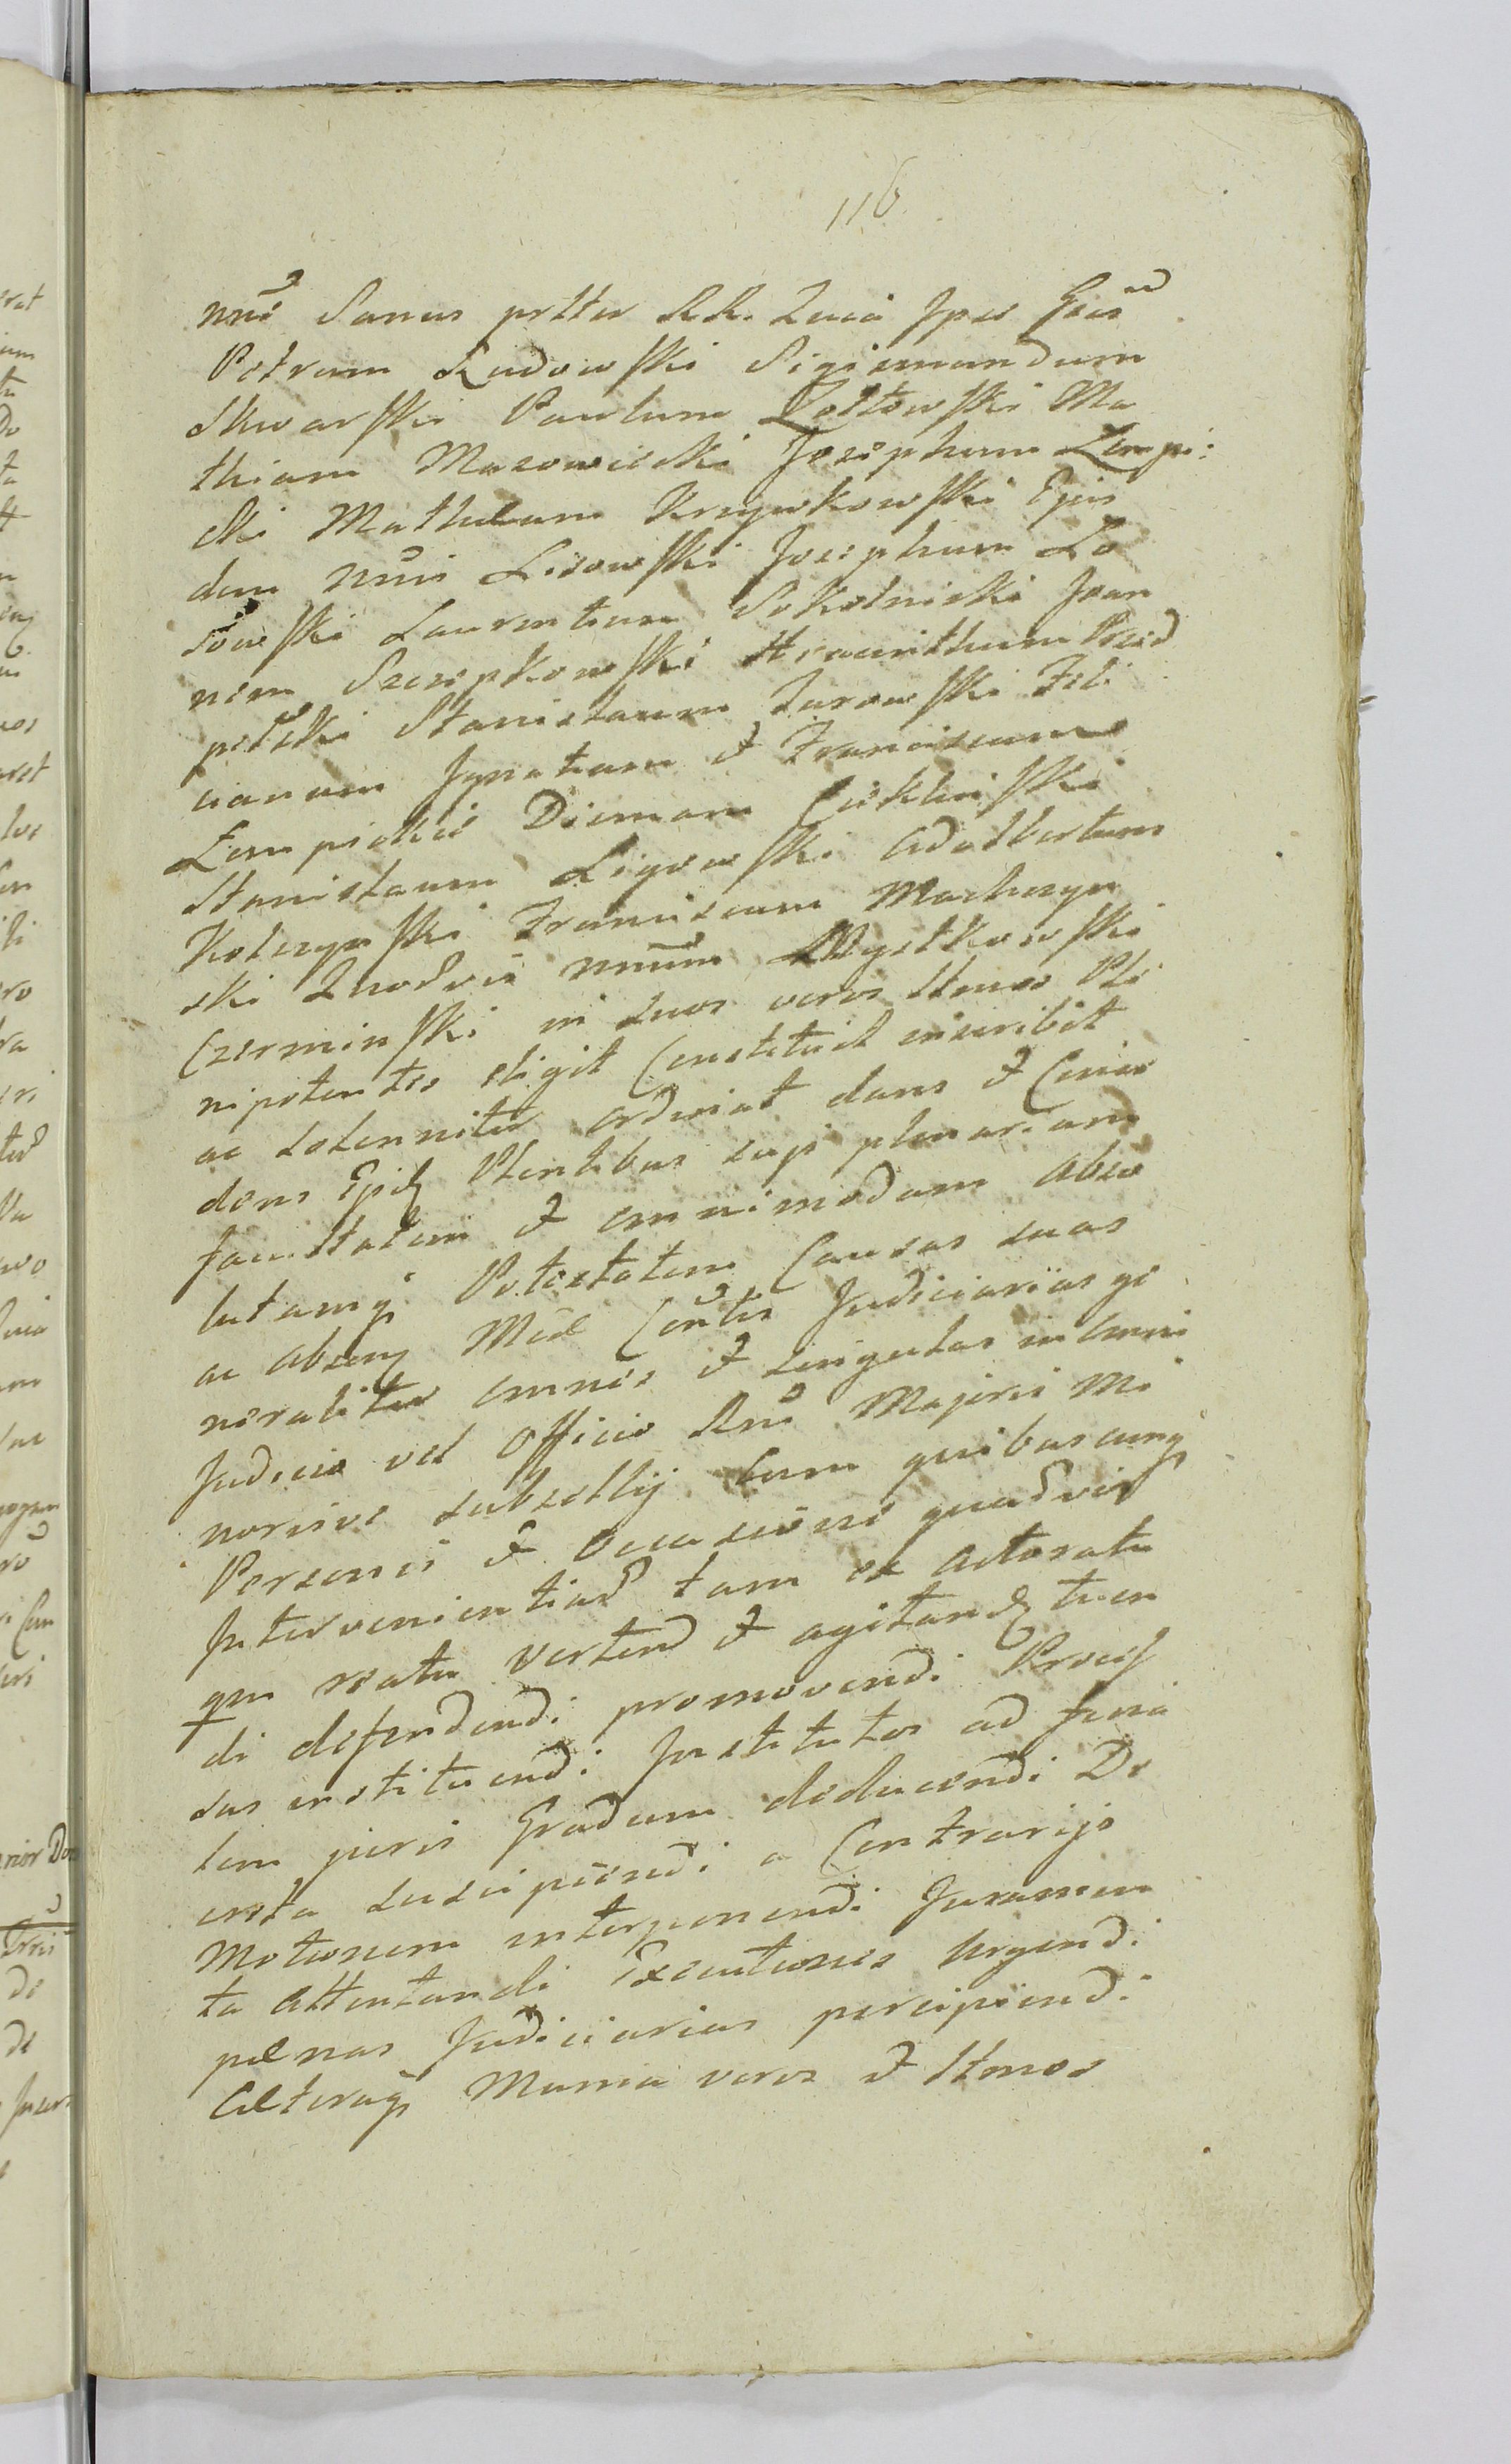 116
nne Sanus prttr RR. Quia Ipse Grsos
Petrum Rudowski Sigismundum
Skwarski Paulum Zołtowski Ma
thiam Mazowiecki Josephum Lempi:
cki Mathæum Krzywkowski Ejus
dem nnis Lisowski Josephum Lo
sowski Laurentium Sokolnicki Joan
nem Szczepkowski Hyacinthum Przed
pełski Stanislaum Zurowski Feli
cianum Ignatium et Franciscum
Lempickie Dismam Cieklinski
Stanislaum Ligowski Adalbertum
Kolczynski Franciscum Machczyn
ski Quodvis nnum Wyszkowski
Czerminski in suos veros ltmos Ple
nipotentes eligit Constituit inscribit
ac solenniter ordinat dans et Conce
dens Ejsdq Plentibus supi plenariam
facultatem et omnimodam abso
lutamq Potestatem Causas suas
ac absenq Mde Contis Judiciarias ge
neraliter omnes et singulas in omni
Judicio vel Officio Rni Majoris Mi
norisve subsellij cum quibuscunq
Personis et occasione quadvis
Intervenientiad tam ex actoratu
qm reatu vertend et agitandq tuen
di defendendi promovendi Process
sus instituendi Institutos ad fina
lem juris Gradum deducendi De
creta suscipiendi a Contrarijs
Motionem interponendi Juramen
ta attentandi Executiones urgendi
pænas Judiciarias percipiendi
Cæteraq Munia veros et ltmos